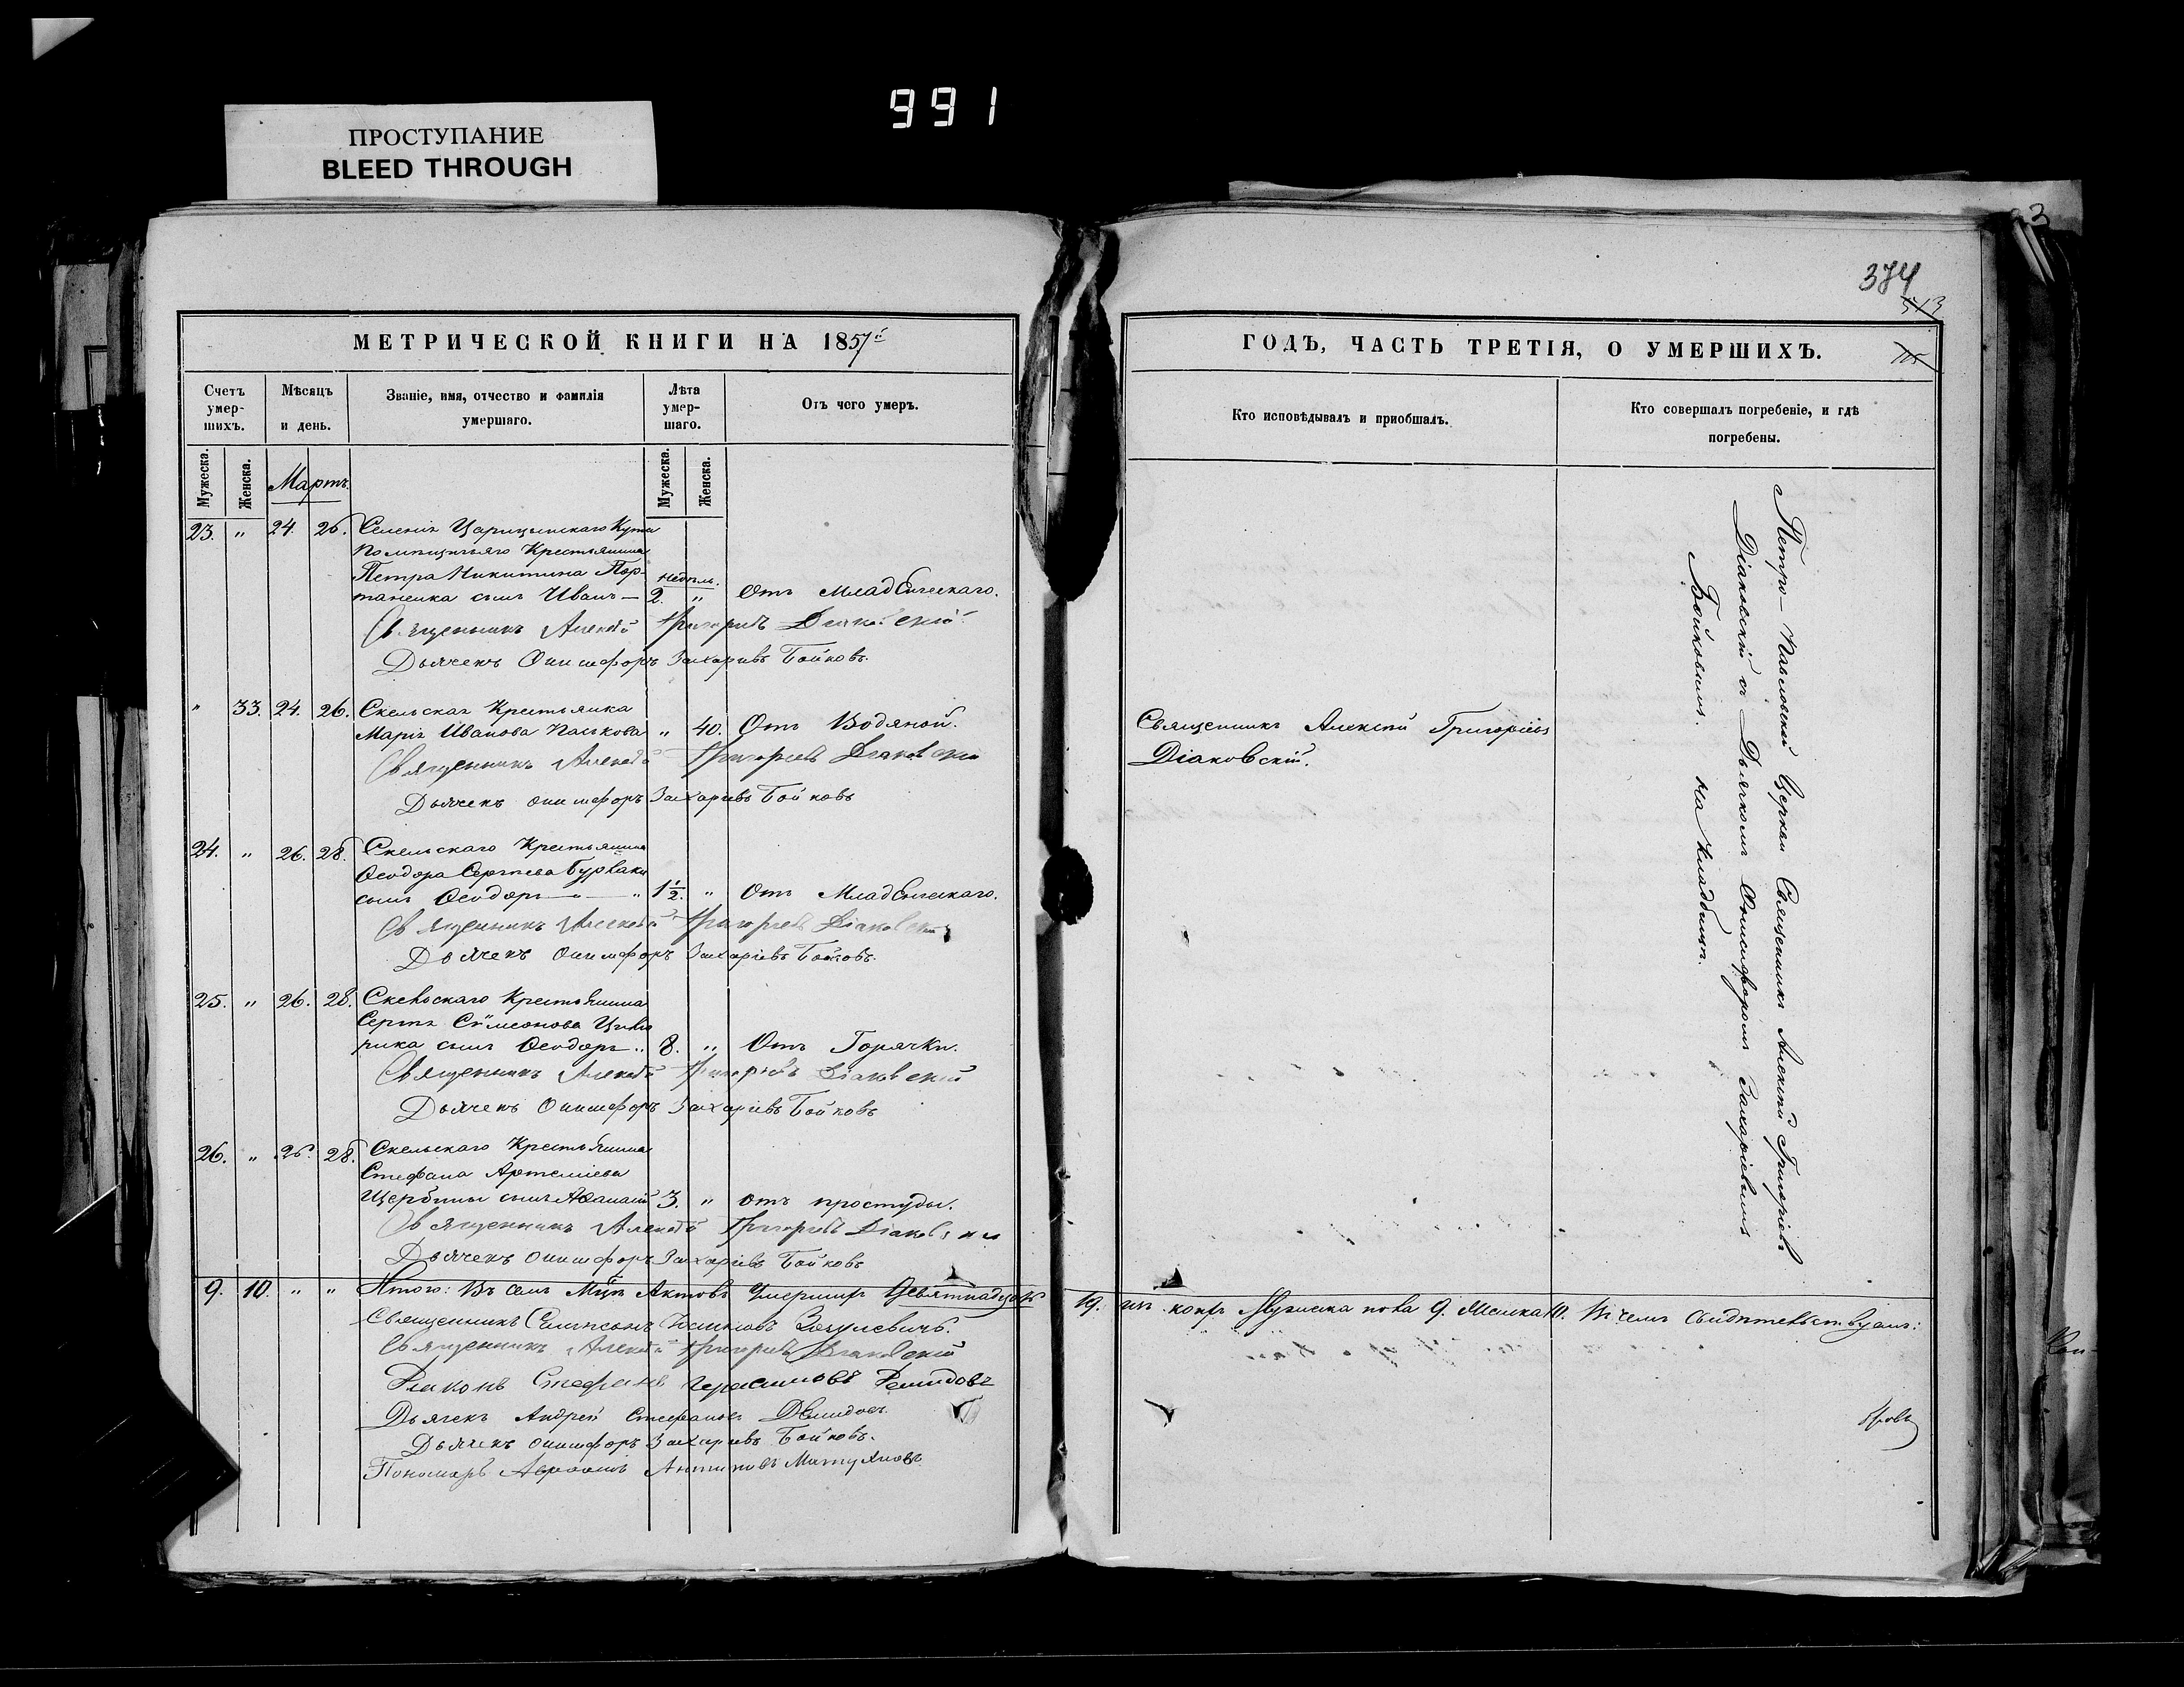 991
ПРОСТУПАНИЕ
BLEED THROUGH
МЕТРИЧЕСКОЙ КНИГИ НА 1857й
Счетъ умер-шихъ.
Мѣсяцъ и день.
Званіе, имя, отчество и фамилія умершаго.
Лѣта умер-шаго.
Отъ чего умеръ.
Мужеска.
Женска.
Мартъ.
Мужеска.
Женска.
23. " 24. 26. Селенія Царицынскаго Кута
Помѣщичьяго Крестьянина
Петра Никитина Пор-
таненка сынъ Иванъ — 2. недѣль. " Отъ Младенческаго.
Священникъ Алексѣй Григоріевъ Діаковскій
Дьячекъ Онисифоръ Захаріевъ Бойковъ.
" 33. 24. 26. Скельская Крестьянка
Марія Иванова Панкова " 40. Отъ Водяной.
Священникъ Алексѣй Григоріевъ Діаковскій
Дьячекъ Онисифоръ Захаріевъ Бойковъ
24. " 26. 28. Скельскаго Крестьянина
Ѳеодора Сергѣева Бурлаки
сынъ Ѳеодоръ — " 1 1/2. " Отъ Младенческаго.
Священникъ Алексѣй Григоріевъ Діаковскій
Дьячекъ Онисифоръ Захаріевъ Бойковъ.
25. " 26. 28. Скельскаго Крестьянина
Сергѣя Сѵмеонова
рика сынъ Ѳеодоръ " 8. " Отъ Горячки.
Священникъ Алексѣй Григоріевъ Діаковскій
Дьячекъ Онисифоръ Захаріевъ Бойковъ
26. " 26. 28. Скельскаго Крестьянина
Стефана Артеміева
Щербины сынъ Аѳанасій 3. " отъ простуды.
Священникъ Алексѣй Григоріевъ Діаковскій
Дьячекъ Онисифоръ Захаріевъ Бойковъ
9. 10. " " Итого: Въ семъ Мцѣ Актовъ Умершихъ Девятнадцать
Священникъ
Священникъ Алексѣй Григоріевъ Діаковскій
Діаконъ Стефанъ Герасимовъ
Дьячекъ Андрей Стефановъ
Дьячекъ Онисифоръ Захаріевъ Бойковъ.
Пономарь Авраамъ Антиповъ
374
ГОДЪ, ЧАСТЬ ТРЕТІЯ, О УМЕРШИХЪ.
Кто исповѣдывалъ и пріобщалъ.
Кто совершалъ погребеніе, и гдѣ погребены.
Священникъ Алексѣй Григоріевъ
Діаковскій.
Петро-Павловской Церкви Священникъ Алексѣй Григоріевъ
Діаковскій съ Дьячкомъ Онисифоромъ Захаріевымъ
Бойковымъ. На Кладбищѣ.
19. изъ коихъ Мужеска пола 9. Женска 10. Въ чемъ свидѣтельствуемъ: